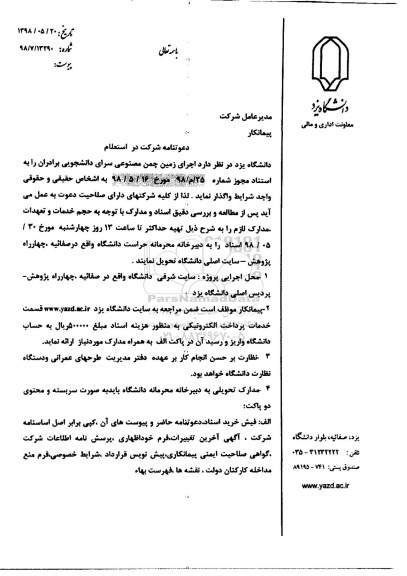 تاریخ: ۲۰ / ۰۵ / ۱۳۹۸
شماره: ۹۸/۷/۱۳۲۹۰
پیوست:
باسمه تعالی
دانشگاه یزد
معاونت اداری و مالی
مدیرعامل شرکت
پیمانکار
دعوتنامه شرکت در استعلام
دانشگاه یزد در نظر دارد اجرای زمین چمن مصنوعی سرای دانشجویی برادران را به
استناد مجوز شماره ۲۵/م/۹۸ مورخ ۱۶ / ۵ / ۹۸ به اشخاص حقیقی و حقوقی
واجد شرایط واگذار نماید . لذا از کلیه شرکتهای دارای صلاحیت دعوت به عمل می
آید پس از مطالعه و بررسی دقیق اسناد و مدارک با توجه به حجم خدمات و تعهدات
،مدارک لازم را به شرح ذیل تهیه حداکثر تا ساعت ۱۳ روز چهارشنبه مورخ ۳۰ /
۰۵ / ۹۸ اسناد را به دبیرخانه محرمانه حراست دانشگاه واقع درصفائیه ،چهارراه
پژوهش – سایت اصلی دانشگاه تحویل نمایند .
۱ -محل اجرایی پروژه : سایت شرقی دانشگاه واقع در صفائیه ،چهارراه پژوهش-
پردیس اصلی دانشگاه یزد
۲-پیمانکار موظف است ضمن مراجعه به سایت دانشگاه یزد www.yazd.ac.ir قسمت
خدمات پرداخت الکترونیکی به منظور هزینه اسناد مبلغ ۵۰۰۰۰۰ریال به حساب
دانشگاه واریز و رسید آن در پاکت الف به همراه مدارک موردنیاز ارائه نماید.
۳ -نظارت بر حسن انجام کار بر عهده دفتر مدیریت طرحهای عمرانی ودستگاه
نظارت دانشگاه خواهد بود.
۴ -مدارک تحویلی به دبیرخانه محرمانه دانشگاه بایدبه صورت سربسته و محتوی
دو پاکت:
الف: فیش خرید اسناد،دعوتنامه حاضر و پیوست های آن ،کپی برابر اصل اساسنامه
شرکت ، آگهی آخرین تغییرات،فرم خوداظهاری ،پرسش نامه اطلاعات شرکت
،گواهی صلاحیت ایمنی پیمانکاری،پیش نویس قرارداد ،شرایط خصوصی،فرم منع
مداخله کارکنان دولت ، نقشه ها ،فهرست بهاء
یزد، صفائیه، بلوار دانشگاه
تلفن: ۳۱۲۳۲۲۲۲ - ۰۳۵
صندوق پستی: ۷۴۱ - ۸۹۱۹۵
www.yazd.ac.ir
ParsNamadData